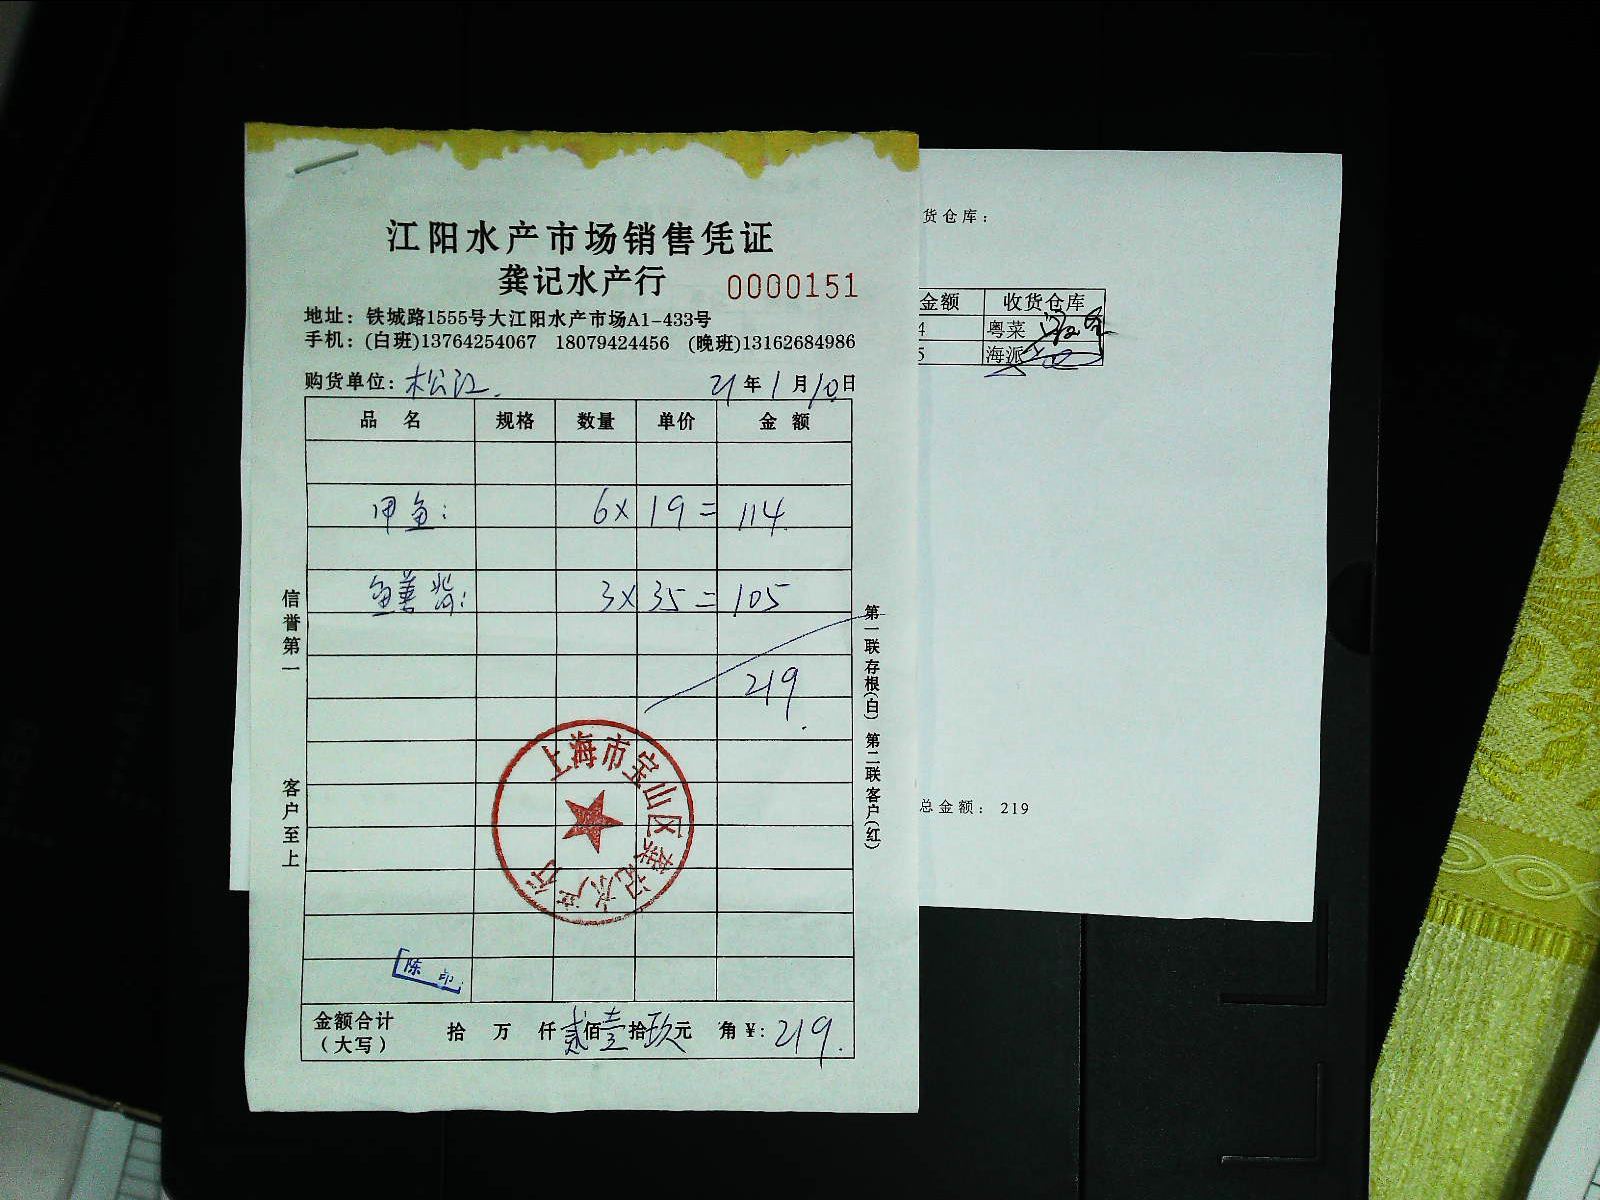 江阳水产市场销售凭证
龚记水产行 0000151
地址：铁城路1555号大江阳水产市场A1-433号
手机：(白班)13764254067 18079424456 (晚班)13162684986
购货单位：松江. 21年1月10日
品 名 规格 数量 单价 金 额
甲鱼： 6× 19= 114
鳝背： 3× 35= 105
219
信誉第一 客户至上
第一联存根(白) 第二联客户(红)
上海市宝山区龚记水产行
陈 印
金额合计（大写） 拾 万 仟贰佰壹拾玖元 角¥: 219.
货仓库：
金额 收货仓库
4 粤菜
5 海派
总金额： 219